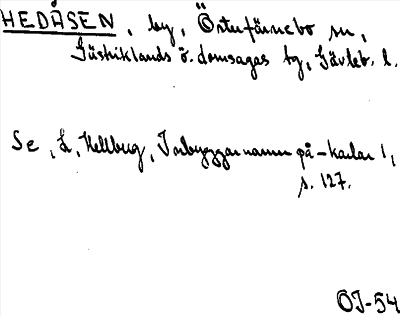 HEDÅSEN, by, Österfärnebo sn,
Gästriklands ö. domsagas tg, Gävleb. l.
Se, L, Hellberg, Inbyggarnamn på -karlar 1,
s. 127.
OJ-54